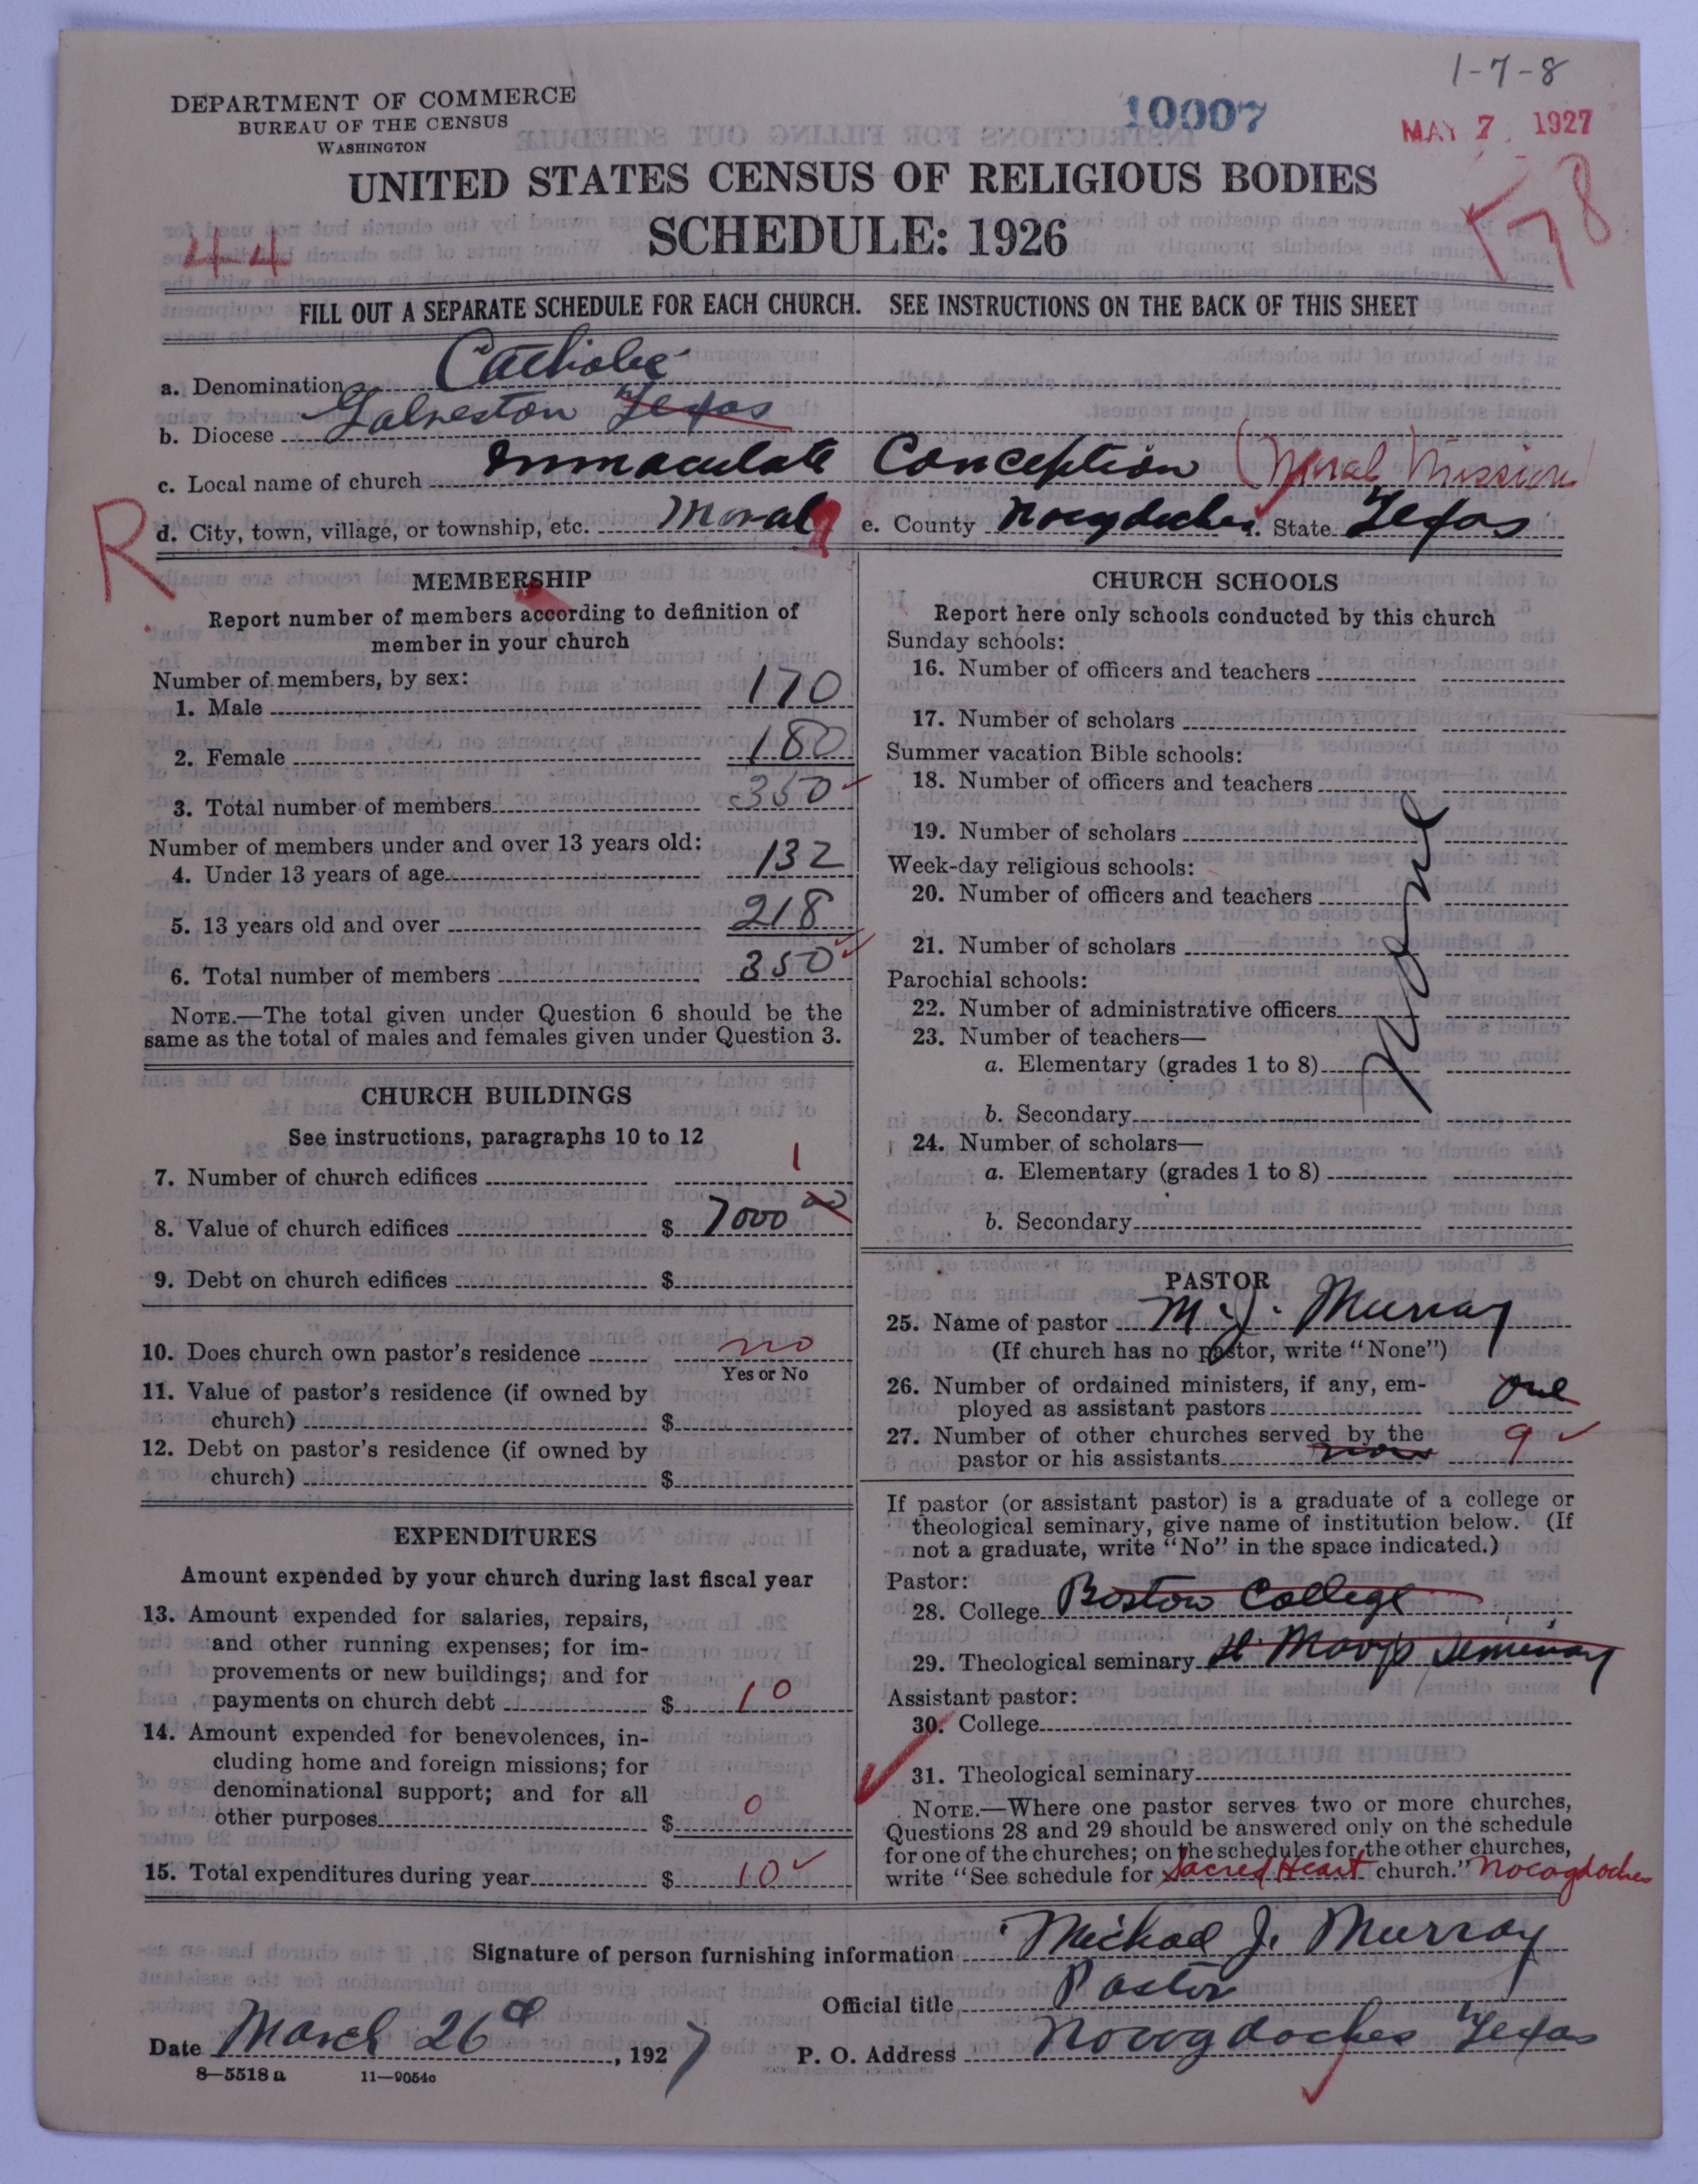 1-7-8
DEPARTMENT OF COMMERCE
BUREAU OF THE CENSUS
WASHINGTON
10007
MAY 7 1927
UNITED STATES CENSUS OF RELIGIOUS BODIES
SCHEDULE: 1926
44
78
FILL OUT A SEPARATE SCHEDULE FOR EACH CHURCH. SEE INSTRUCTIONS ON THE BACK OF THIS SHEET
a. Denomination Catholic
b. Diocese Galveston Texas
c. Local name of church Immaculate Conception (Moral Mission
R
d. City, town, village, or township, etc. Moral e. County Nacogdoches f. State Texas
MEMBERSHIP
Report number of members according to definition of
member in your church
Number of members, by sex:
1. Male 170
2. Female 180
3. Total number of members 350
Number of members under and over 13 years old:
4. Under 13 years of age 132
5. 13 years old and over 218
6. Total number of members 350
NOTE.—The total given under Question 6 should be the
same as the total of males and females given under Question 3.
CHURCH BUILDINGS
See instructions, paragraphs 10 to 12
7. Number of church edifices 1
8. Value of church edifices $ 7000 00
9. Debt on church edifices $
10. Does church own pastor's residence no
Yes or No
11. Value of pastor's residence (if owned by
church) $
12. Debt on pastor's residence (if owned by
church) $
EXPENDITURES
Amount expended by your church during last fiscal year
13. Amount expended for salaries, repairs,
and other running expenses; for im-
provements or new buildings; and for
payments on church debt $ 10
14. Amount expended for benevolences, in-
cluding home and foreign missions; for
denominational support; and for all
other purposes $ 0
15. Total expenditures during year $ 10
CHURCH SCHOOLS
Report here only schools conducted by this church
Sunday schools:
16. Number of officers and teachers
17. Number of scholars
Summer vacation Bible schools:
18. Number of officers and teachers
19. Number of scholars
Week-day religious schools:
20. Number of officers and teachers
21. Number of scholars
Parochial schools:
22. Number of administrative officers
23. Number of teachers—
a. Elementary (grades 1 to 8)
b. Secondary
24. Number of scholars—
a. Elementary (grades 1 to 8)
b. Secondary
None
PASTOR
25. Name of pastor M. J. Murray
(If church has no pastor, write "None")
26. Number of ordained ministers, if any, em-
ployed as assistant pastors one
27. Number of other churches served by the
pastor or his assistants none 9
If pastor (or assistant pastor) is a graduate of a college or
theological seminary, give name of institution below. (If
not a graduate, write "No" in the space indicated.)
Pastor:
28. College Boston College
29. Theological seminary St Marys Seminary
Assistant pastor:
30. College
31. Theological seminary
NOTE.—Where one pastor serves two or more churches,
Questions 28 and 29 should be answered only on the schedule
for one of the churches; on the schedules for the other churches,
write "See schedule for Sacred Heart church." Nocogdoches
Signature of person furnishing information Michael J. Murray
Official title Pastor
Date March 26th, 1927 P. O. Address Nacogdoches Texas
8—5518 a 11—9054c